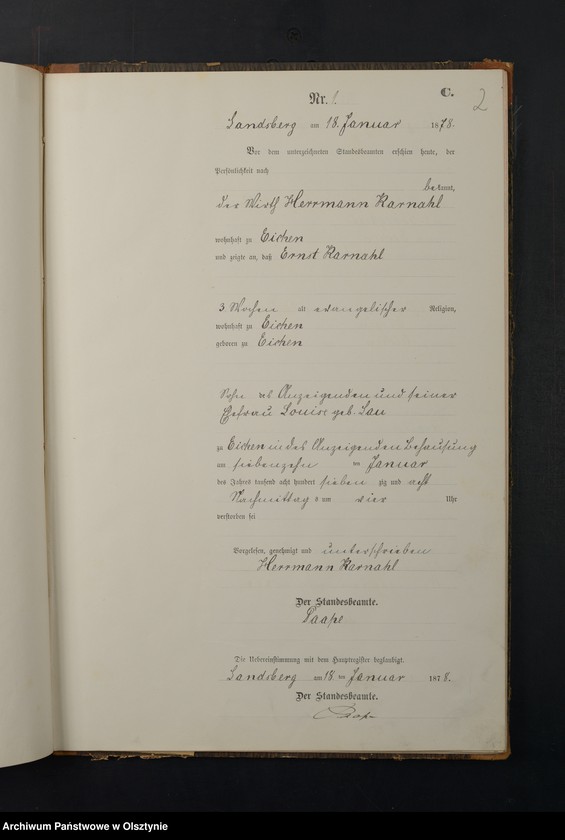 C.
2
Nr. 1.
Landsberg am 18. Januar 1878.
Vor dem unterzeichneten Standesbeamten erschien heute, der
Persönlichkeit nach
bekannt,
der Wirth Herrmann Karnahl
wohnhaft zu Eichen
und zeigte an, daß Ernst Karnahl
3 Wochen alt evangelischer Religion,
wohnhaft zu Eichen
geboren zu Eichen
Sohn des Anzeigenden und seiner
Ehefrau Louise geb. Lau
zu Eichen in des Anzeigenden Behausung
am siebenzehn ten Januar
des Jahres tausend acht hundert sieben zig und acht
Nachmittags um vier Uhr
verstorben sei
Vorgelesen, genehmigt und unterschrieben
Herrmann Karnahl
Der Standesbeamte.
Die Uebereinstimmung mit dem Hauptregister beglaubigt.
Landsberg am 18 ten Januar 1878.
Der Standesbeamte.
Archiwum Państwowe w Olsztynie